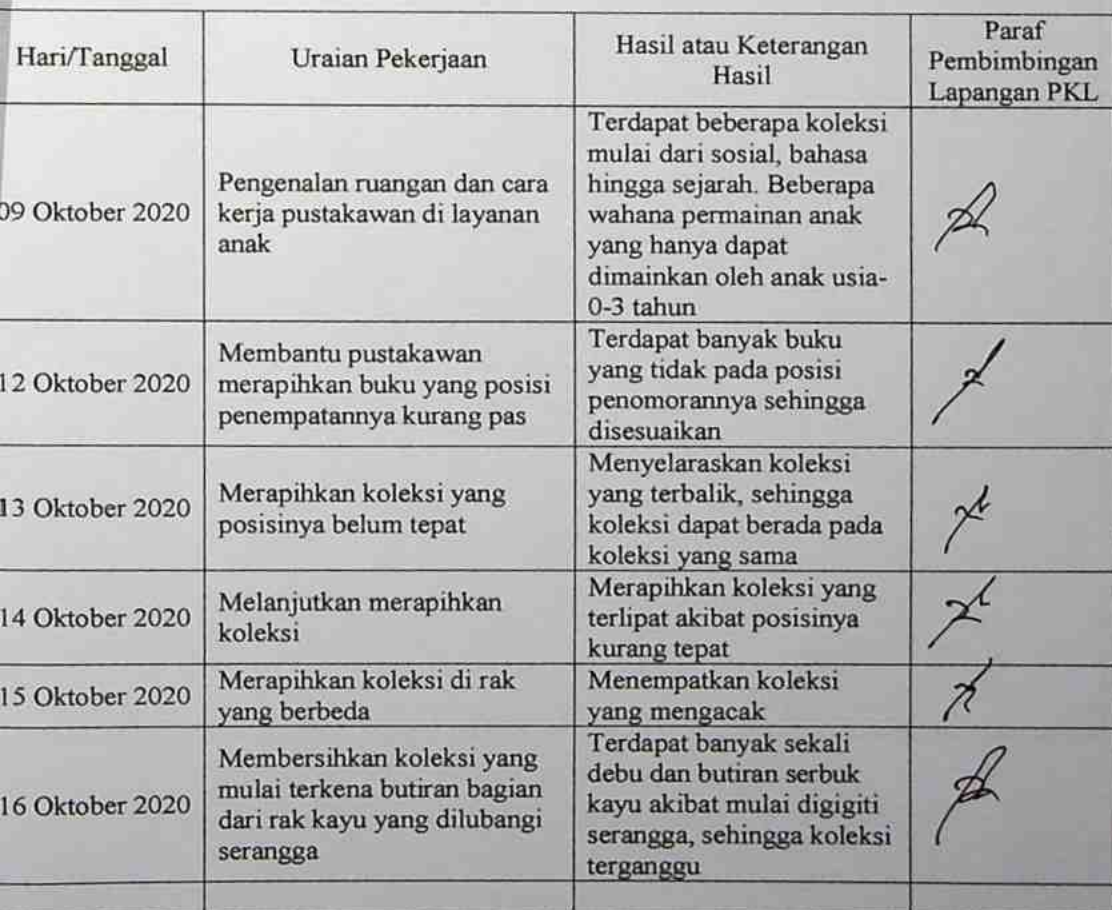 Hari/Tanggal
Uraian Pekerjaan
Hasil atau Keterangan
Hasil
Paraf
Pembimbingan
Lapangan PKL
09 Oktober 2020
Pengenalan ruangan dan cara
kerja pustakawan di layanan
anak
Terdapat beberapa koleksi
mulai dari sosial, bahasa
hingga sejarah. Beberapa
wahana permainan anak
yang hanya dapat
dimainkan oleh anak usia-
0-3 tahun
12 Oktober 2020
Membantu pustakawan
merapihkan buku yang posisi
penempatannya kurang pas
Terdapat banyak buku
yang tidak pada posisi
penomorannya sehingga
disesuaikan
13 Oktober 2020
Merapihkan koleksi yang
posisinya belum tepat
Menyelaraskan koleksi
yang terbalik, sehingga
koleksi dapat berada pada
koleksi yang sama
14 Oktober 2020
Melanjutkan merapihkan
koleksi
Merapihkan koleksi yang
terlipat akibat posisinya
kurang tepat
15 Oktober 2020
Merapihkan koleksi di rak
yang berbeda
Menempatkan koleksi
yang mengacak
16 Oktober 2020
Membersihkan koleksi yang
mulai terkena butiran bagian
dari rak kayu yang dilubangi
serangga
Terdapat banyak sekali
debu dan butiran serbuk
kayu akibat mulai digigiti
serangga, sehingga koleksi
terganggu